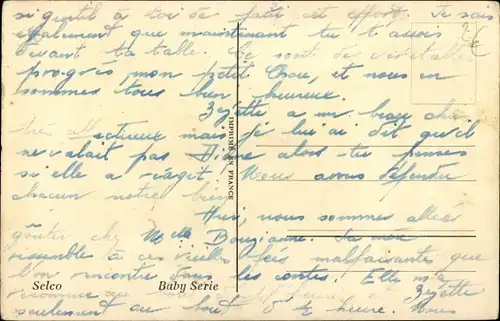 si gentil à toi de faire cet effort. Je sais
également que maintenant tu t'assois
devant ta table. Ce sont de véritables
progrès, mon petit Chou, et nous en
sommes tous bien heureux.
Zezette a un beau chat
très affectueux mais je lui ai dit qu'il
ne valait pas alors tu penses
si elle a réagit. Nous avons défendu
chacun notre bien
Hier, nous sommes allées
goûter chez Melle Bouzianne. Sa mère
ressemble à ces vieilles fées malfaisantes que
l'on rencontre dans les contes. Elle m'a
Zezette
seulement au bout d' heure. Nous
IMPRIMÉ EN FRANCE
Selco Baby Serie